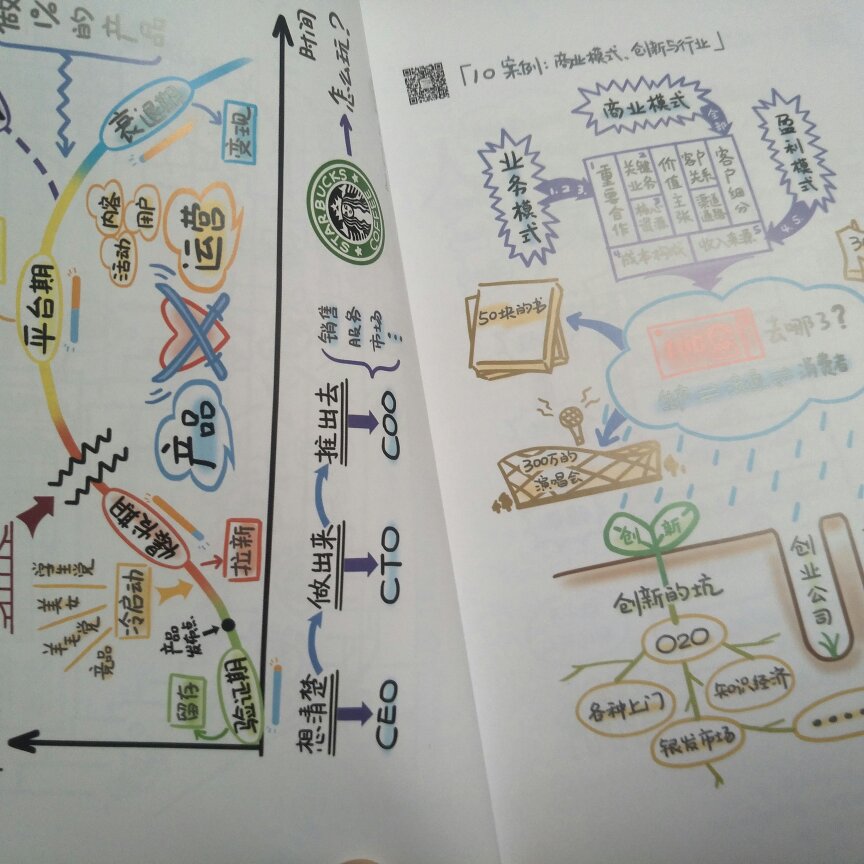 做
1%
的
产
品
衰退期
变现
内容
用户
活动
运营
平台期
产品
爆发期
拉新
学生党
美女
羊毛党
竞品
冷启动
产品
发布点
验证期
留存
时间
怎么玩?
STARBUCKS
COFFEE
销售
服务
市场
推出去
COO
做出来
CTO
想清楚
CEO
「10 案例:商业模式、创新与行业」
商业模式
业务模式
盈利模式
重要合作
关键业务
核心资源
价值主张
客户关系
渠道通路
客户细分
成本构成
收入来源
1. 2. 3.
4. 5.
50块的书
去哪了?
消费者
300万的
演唱会
创新
创新的坑
创业公司
O2O
各种上门
知识经济
银发市场